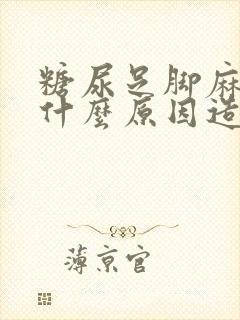 糖尿足脚麻
什麼原因造
薄京官